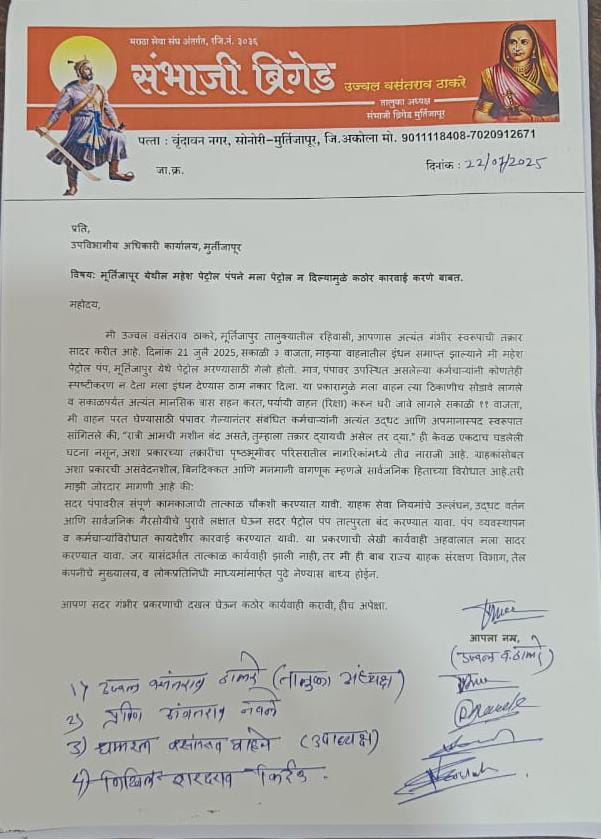 मराठा सेवा संघ अंतर्गत, रजि.नं. ३०३६
संभाजी ब्रिगेड
उज्वल वसंतराव ठाकरे
तालुका अध्यक्ष
संभाजी ब्रिगेड मुर्तिजापूर
पत्ता : वृंदावन नगर, सोनोरी-मुर्तिजापूर, जि.अकोला मो. 9011118408-7020912671
जा.क्र.
दिनांक : 22/07/2025
प्रति,
उपविभागीय अधिकारी कार्यालय, मुर्तीजापूर
विषय: मूर्तिजापूर येथील महेश पेट्रोल पंपने मला पेट्रोल न दिल्यामुळे कठोर कारवाई करणे बाबत.
महोदय,
मी उज्वल वसंतराव ठाकरे, मूर्तिजापुर तालुक्यातील रहिवासी, आपणास अत्यंत गंभीर स्वरूपाची तक्रार
सादर करीत आहे. दिनांक 21 जुलै 2025, सकाळी ३ वाजता, माझ्या वाहनातील इंधन समाप्त झाल्याने मी महेश
पेट्रोल पंप, मूर्तिजापुर येथे पेट्रोल भरण्यासाठी गेलो होतो. मात्र, पंपावर उपस्थित असलेल्या कर्मचाऱ्यांनी कोणतेही
स्पष्टीकरण न देता मला इंधन देण्यास ठाम नकार दिला. या प्रकारामुळे मला वाहन त्या ठिकाणीच सोडावे लागले
व सकाळपर्यंत अत्यंत मानसिक त्रास सहन करत, पर्यायी वाहन (रिक्षा) करून घरी जावे लागले सकाळी ११ वाजता,
मी वाहन परत घेण्यासाठी पंपावर गेल्यानंतर संबंधित कर्मचाऱ्यांनी अत्यंत उद्धट आणि अपमानास्पद स्वरूपात
सांगितले की, "रात्री आमची मशीन बंद असते, तुम्हाला तक्रार द्यायची असेल तर द्या." ही केवळ एकदाच घडलेली
घटना नसून, अशा प्रकारच्या तक्रारींचा पृष्ठभूमीवर परिसरातील नागरिकांमध्ये तीव्र नाराजी आहे. ग्राहकांसोबत
अशा प्रकारची असंवेदनशील, बिनदिक्कत आणि मनमानी वागणूक म्हणजे सार्वजनिक हिताच्या विरोधात आहे.तरी
माझी जोरदार मागणी आहे की:
सदर पंपावरील संपूर्ण कामकाजाची तात्काळ चौकशी करण्यात यावी. ग्राहक सेवा नियमांचे उल्लंघन, उद्धट वर्तन
आणि सार्वजनिक गैरसोयीचे पुरावे लक्षात घेऊन सदर पेट्रोल पंप तात्पुरता बंद करण्यात यावा. पंप व्यवस्थापन
व कर्मचाऱ्यांविरोधात कायदेशीर कारवाई करण्यात यावी. या प्रकरणाची लेखी कार्यवाही अहवालात मला सादर
करण्यात यावा. जर यासंदर्भात तात्काळ कार्यवाही झाली नाही, तर मी ही बाब राज्य ग्राहक संरक्षण विभाग, तेल
कंपनीचे मुख्यालय, व लोकप्रतिनिधी माध्यमांमार्फत पुढे नेण्यास बाध्य होईन.
आपण सदर गंभीर प्रकरणाची दखल घेऊन कठोर कार्यवाही करावी, हीच अपेक्षा.
आपला नम्र,
(उज्वल व.ठाकरे)
1) उज्वल वसंतराव ठाकरे (तालुका अध्यक्ष)
2)
3) वसंतराव (उपाध्यक्ष)
4) निखिल शरदराव